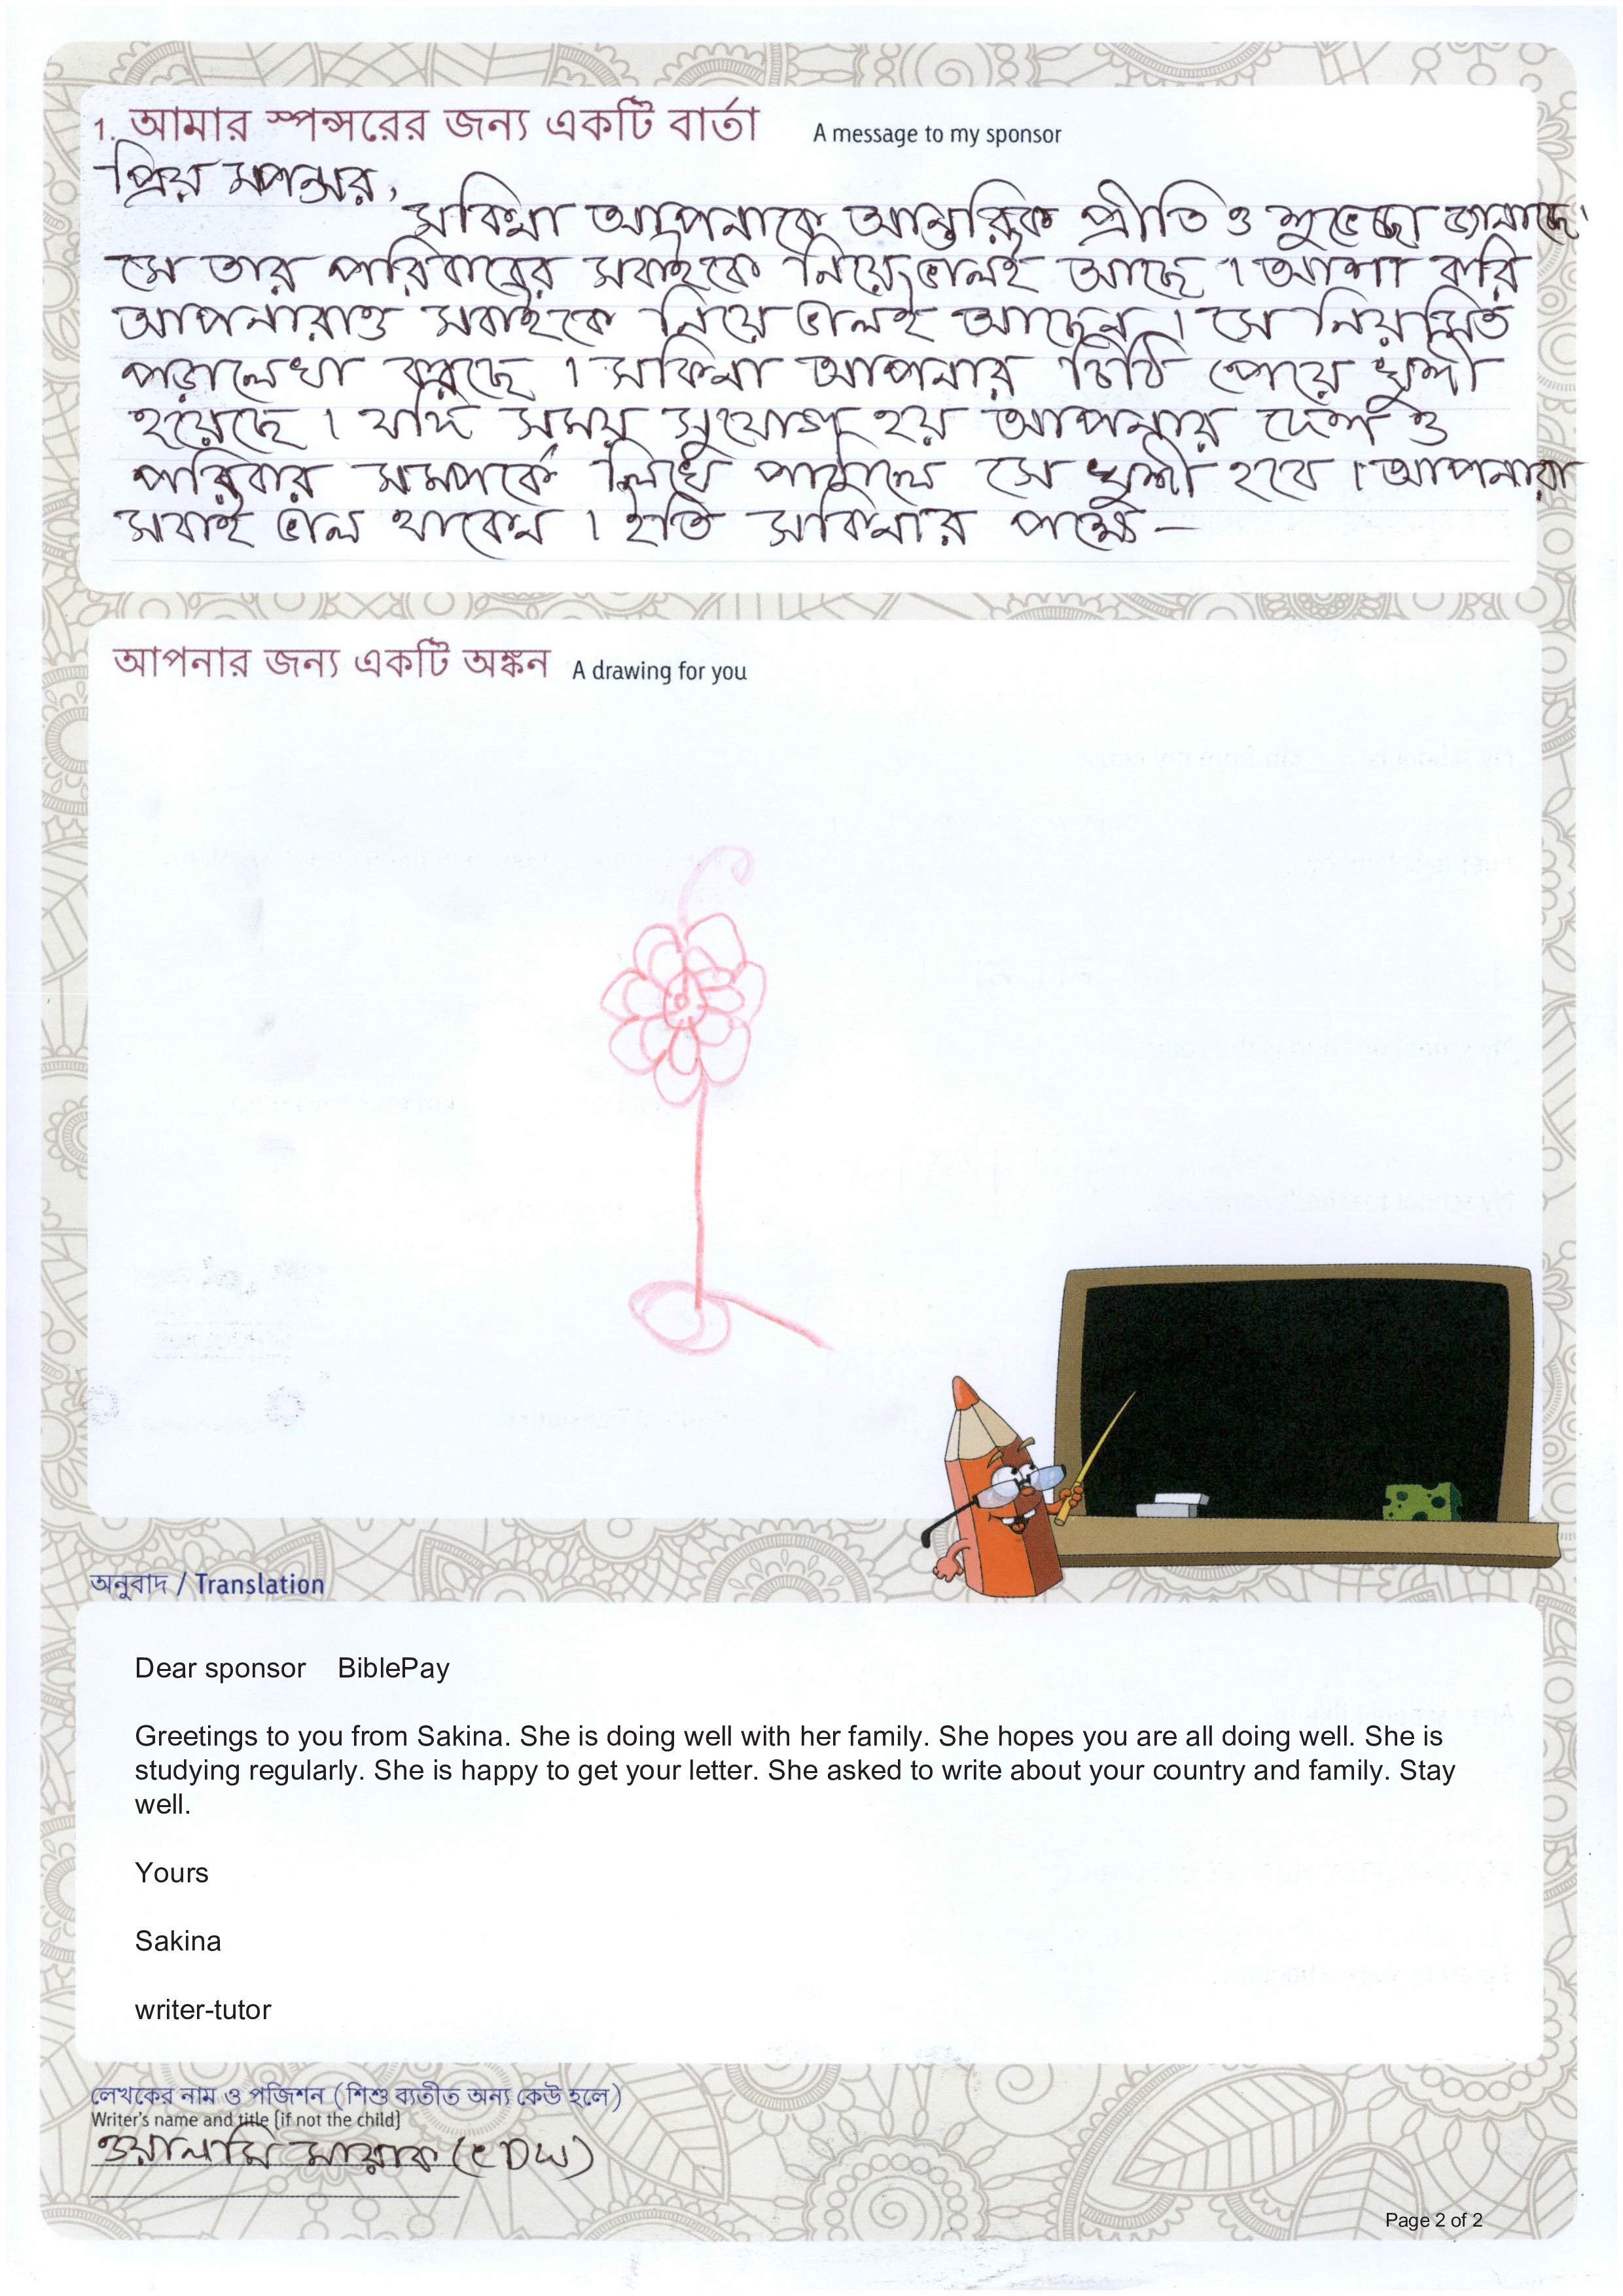 1. আমার স্পন্সরের জন্য একটি বার্তা A message to my sponsor
প্রিয় সপন্সর,
সকিনা আপনাকে আন্তরিক প্রীতি ও শুভেচ্ছা জানাচ্ছে।
সে তার পরিবারের সবাইকে নিয়ে ভালই আছে। আশা করি
আপনারাও সবাইকে নিয়ে ভালই আছেন। সে নিয়মিত
পড়ালেখা করছে। সকিনা আপনার চিঠি পেয়ে খুশী
হয়েছে। যদি সময় সুযোগ হয় আপনার দেশ ও
পরিবার সমপর্কে লিখে পাঠালে সে খুশী হবে। আপনারা
সবাই ভাল থাকেন। ইতি সকিনার পক্ষে-
আপনার জন্য একটি অঙ্কন A drawing for you
অনুবাদ / Translation
Dear sponsor BiblePay
Greetings to you from Sakina. She is doing well with her family. She hopes you are all doing well. She is
studying regularly. She is happy to get your letter. She asked to write about your country and family. Stay
well.
Yours
Sakina
writer-tutor
লেখকের নাম ও পজিশন (শিশু ব্যতীত অন্য কেউ হলে)
Writer's name and title (if not the child)
(CDW)
Page 2 of 2